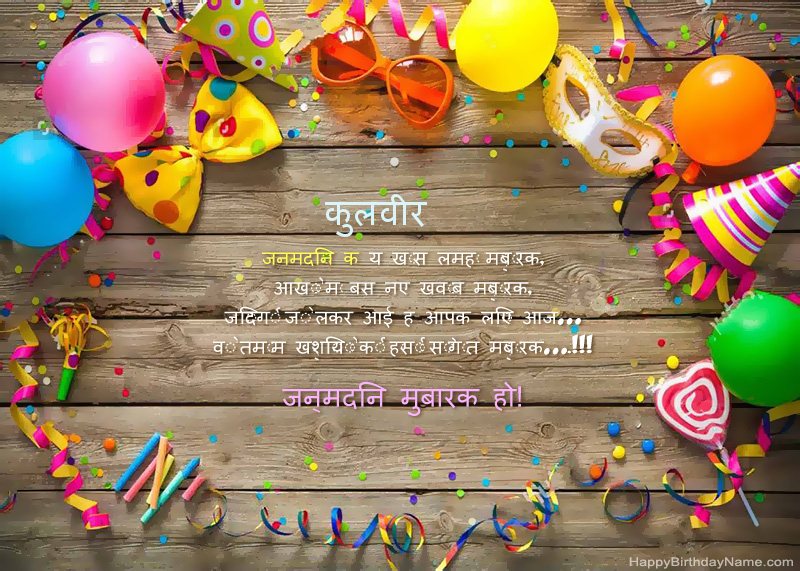 कुलवीर
जन्मदिन के ये खास लम्हे मुबारक,
आंखों में बसे नए ख्वाब मुबारक,
जिंदगी जो लेकर आई है आपके लिए आज...
वो तमाम खुशियों की हसीं सौगात मुबारक...!!!
जन्मदिन मुबारक हो!
HappyBirthdayName.com